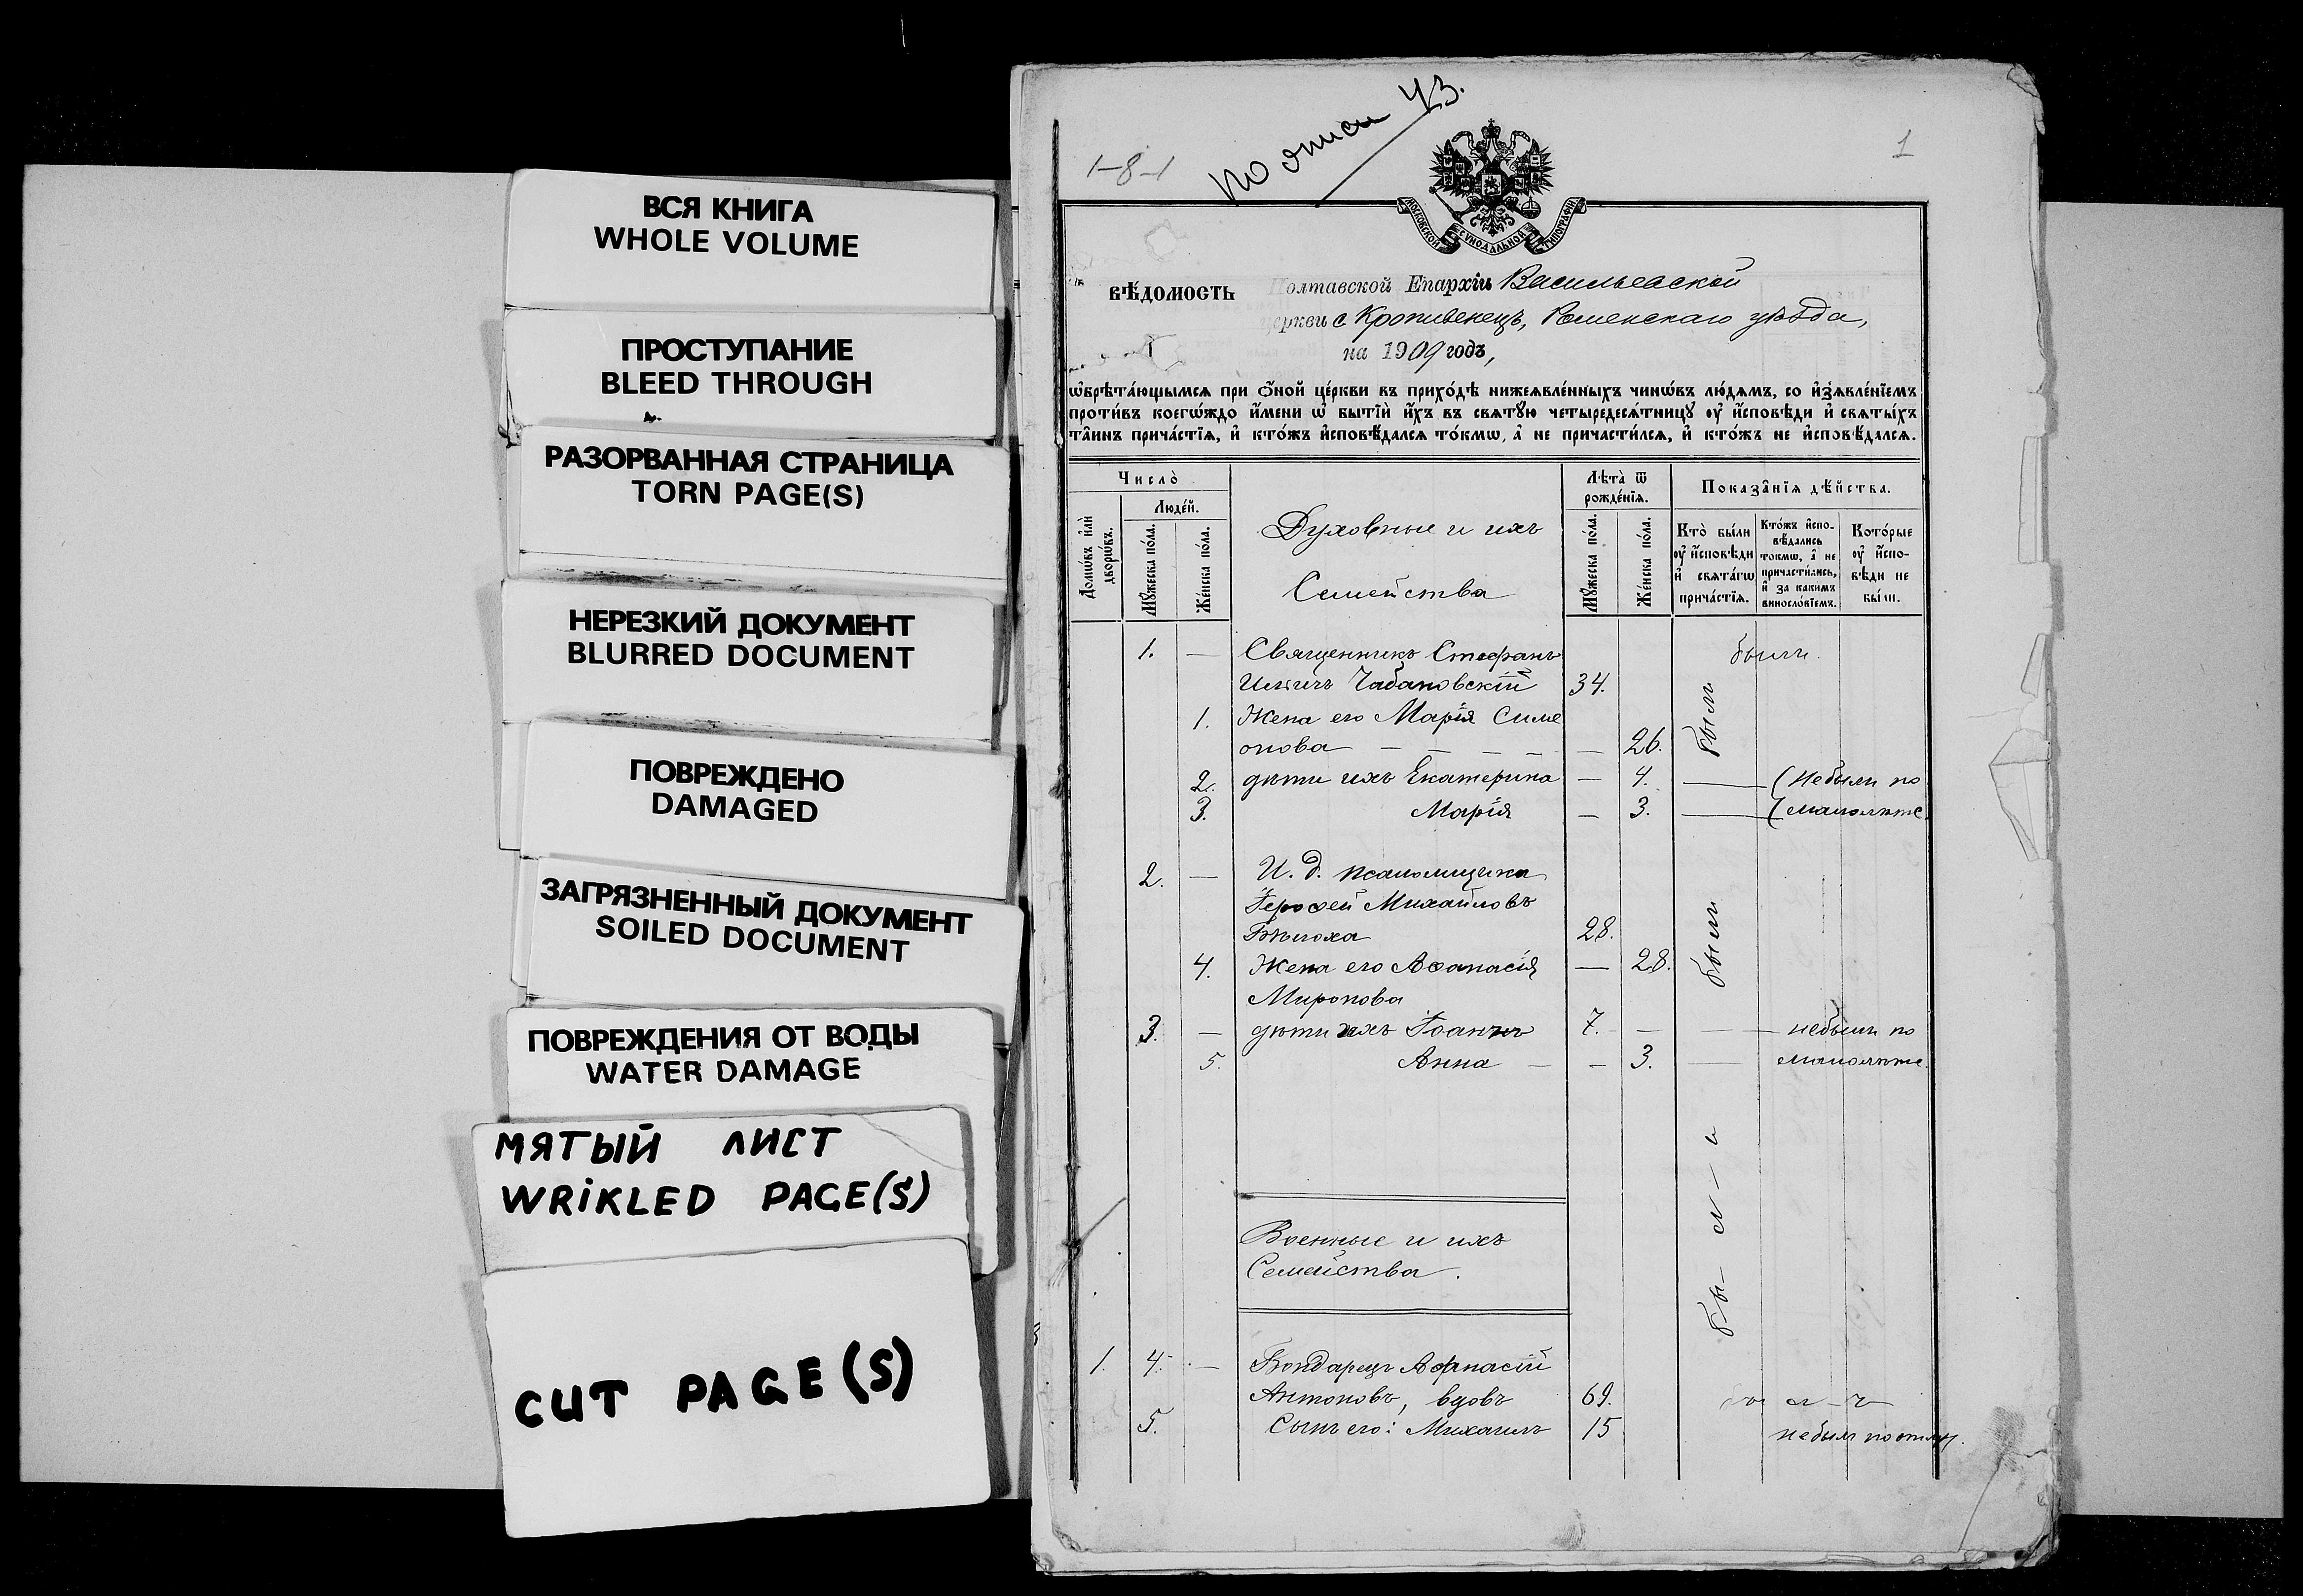 ВСЯ КНИГА
WHOLE VOLUME
ПРОСТУПАНИЕ
BLEED THROUGH
РАЗОРВАННАЯ СТРАНИЦА
TORN PAGE(S)
НЕРЕЗКИЙ ДОКУМЕНТ
BLURRED DOCUMENT
ПОВРЕЖДЕНО
DAMAGED
ЗАГРЯЗНЕННЫЙ ДОКУМЕНТ
SOILED DOCUMENT
ПОВРЕЖДЕНИЯ ОТ ВОДЫ
WATER DAMAGE
МЯТЫЙ ЛИСТ
WRiKLED PAGE(S)
CUT PAGE(S)
1-8-1
по описи 43.
1
МОСКОВСКОЙ СѴНОДАЛЬНОЙ ТИПОГРАФІИ
вѣ́домость Полтавской Епархіи Васильевской
церкви с Кропивенецъ, Роменскаго уѣзда,
на 1909 годъ,
ѡ҆брѣта́ющымся при ѻ҆́ной це́ркви въ прихо́дѣ нижеꙗвле́нныхъ чинѡ́въ лю́дямъ, со и҆з̾ꙗвле́нїемъ
проти́въ коегѡ́ждо и҆́мени ѡ҆ бытїѝ и҆́хъ въ свѧтꙋ́ю четыредесѧ́тницꙋ ᲂу҆ и҆́сповѣди и҆ свѧты́хъ
та̑инъ прича́стїѧ, и҆ кто́жъ и҆сповѣ́дался то́кмѡ, а҆ не причасти́лся, и҆ кто́жъ не и҆сповѣ́дался.
Число̀
Домѡ́въ и҆лѝ дворѡ́въ.
Люде́й.
Мꙋ́жеска по́ла.
Же́нска по́ла.
Духовные и ихъ
Семейства
Лѣ́та ѿ рожде́нїѧ.
Мꙋ́жеска по́ла.
Же́нска по́ла.
Показа̑нїѧ дѣ́йства.
Кто̀ бы́ли ᲂу҆ и҆́сповѣди и҆ свѧта́гѡ прича́стїѧ.
Кто́жъ и҆сповѣ́дались то́кмѡ, а҆ не причасти́лись, и҆ за каки́мъ винослѡ́вїемъ.
Кото́рые ᲂу҆ и҆́сповѣди не бы́ли.
1. — Священникъ Стефанъ были.
Ильичъ Чабановскій 34.
1. Жена его Марія Симе
онова — — — — — 26. были
2. дѣти ихъ Екатерина — 4. — (небыли по
3. Марія — 3. — (малолѣте.
2. — И. д. псаломщика
Іероѳей Михайловъ
Бѣлоха 28. были
4. Жена его Аѳанасія — 28.
Миронова
3. — дѣти ихъ Іоаннъ 7. — — — небыли по
5. Анна — — 3. — малолѣте.
бы-л-и
Военные и ихъ
Семейства.
1. 4. — Бондарецъ Афанасій
Антоновъ, вдовъ 69. бы л-ъ
5. Сынъ его: Михаилъ 15 небылъ по отлуч.